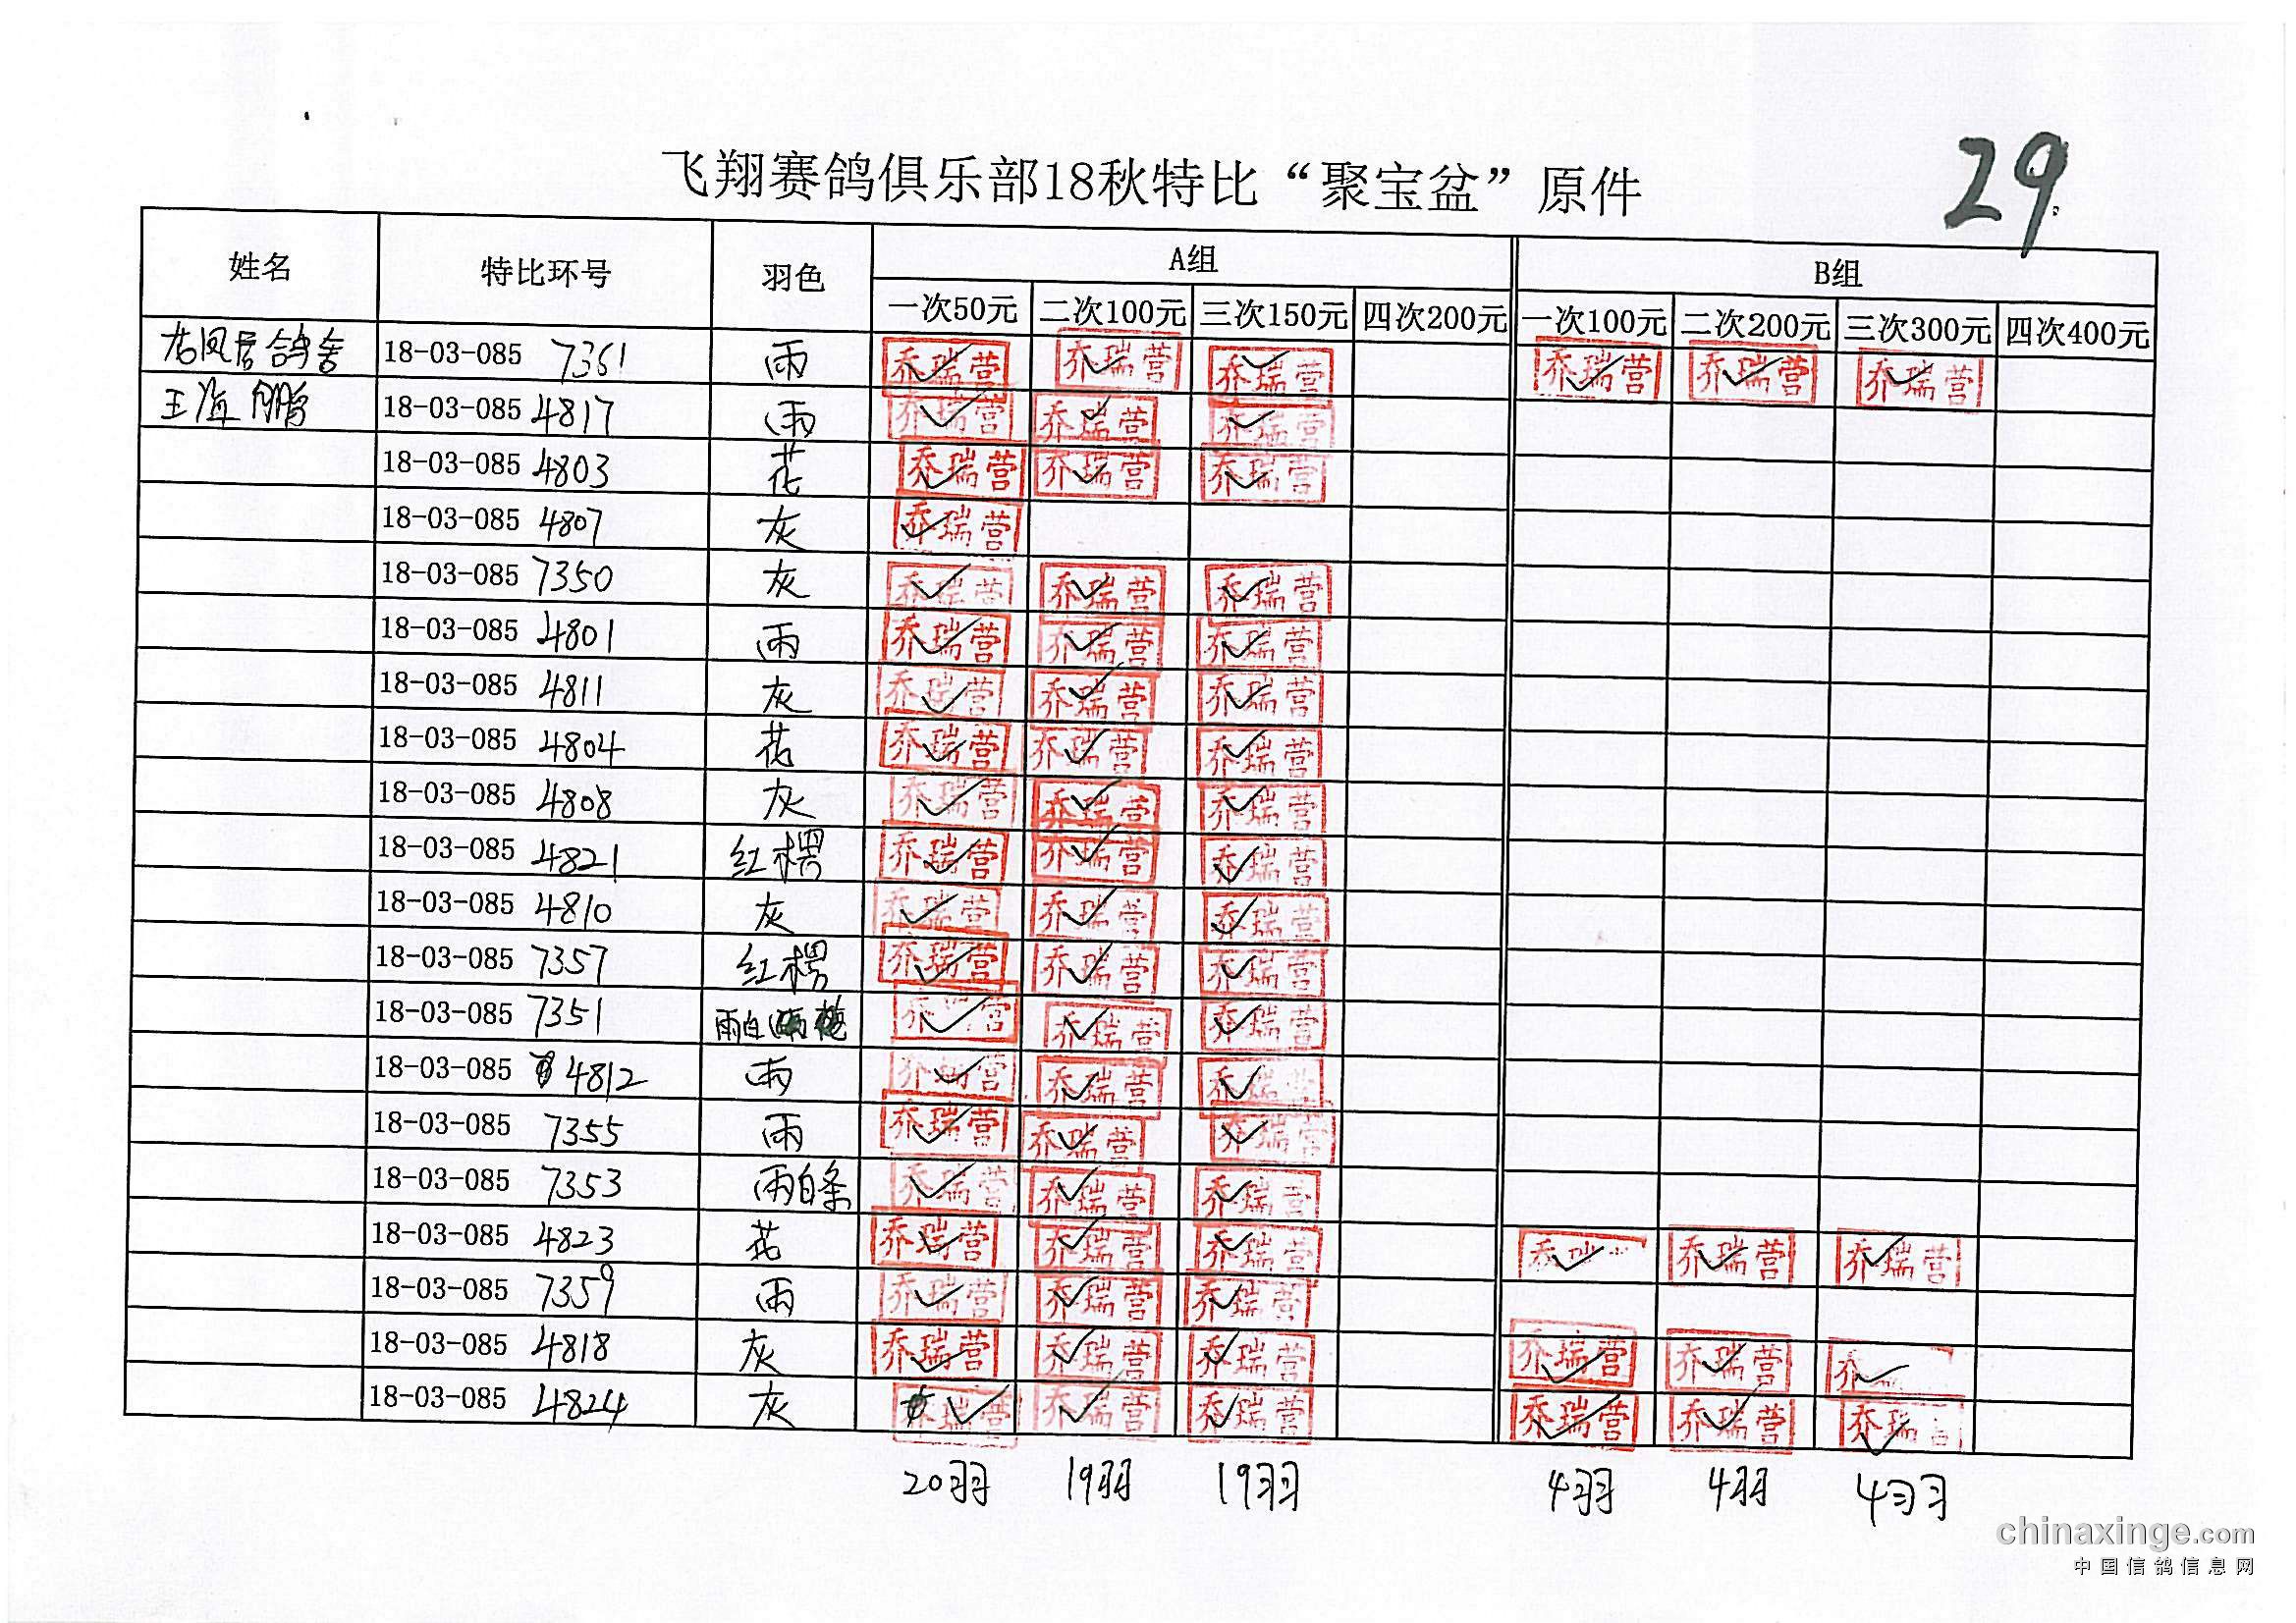 飞翔赛鸽俱乐部18秋特比“聚宝盆”原件
29
姓名 特比环号 羽色 A组 B组
一次50元 二次100元 三次150元 四次200元 一次100元 二次200元 三次300元 四次400元
龙凤居鸽舍 18-03-085 7361 雨 乔瑞营 乔瑞营 乔瑞营 乔瑞营 乔瑞营 乔瑞营
王海鹏 18-03-085 4817 雨 乔瑞营 乔瑞营 乔瑞营
18-03-085 4803 花 乔瑞营 乔瑞营 乔瑞营
18-03-085 4807 灰 乔瑞营
18-03-085 7350 灰 乔瑞营 乔瑞营 乔瑞营
18-03-085 4801 雨 乔瑞营 乔瑞营 乔瑞营
18-03-085 4811 灰 乔瑞营 乔瑞营 乔瑞营
18-03-085 4804 花 乔瑞营 乔瑞营 乔瑞营
18-03-085 4808 灰 乔瑞营 乔瑞营 乔瑞营
18-03-085 4821 红楞 乔瑞营 乔瑞营 乔瑞营
18-03-085 4810 灰 乔瑞营 乔瑞营 乔瑞营
18-03-085 7357 红楞 乔瑞营 乔瑞营 乔瑞营
18-03-085 7351 雨白 乔瑞营 乔瑞营 乔瑞营
18-03-085 4812 雨 乔瑞营 乔瑞营 乔瑞营
18-03-085 7355 雨 乔瑞营 乔瑞营 乔瑞营
18-03-085 7353 雨白条 乔瑞营 乔瑞营 乔瑞营
18-03-085 4823 花 乔瑞营 乔瑞营 乔瑞营 乔瑞 乔瑞营 乔瑞营
18-03-085 7359 雨 乔瑞营 乔瑞营 乔瑞营
18-03-085 4818 灰 乔瑞营 乔瑞营 乔瑞营 乔瑞营 乔瑞营 乔
18-03-085 4824 灰 乔瑞营 乔瑞营 乔瑞营 乔瑞营 乔瑞营 乔瑞营
20羽 19羽 19羽 4羽 4羽 4羽
chinaxinge.com
中国信鸽信息网